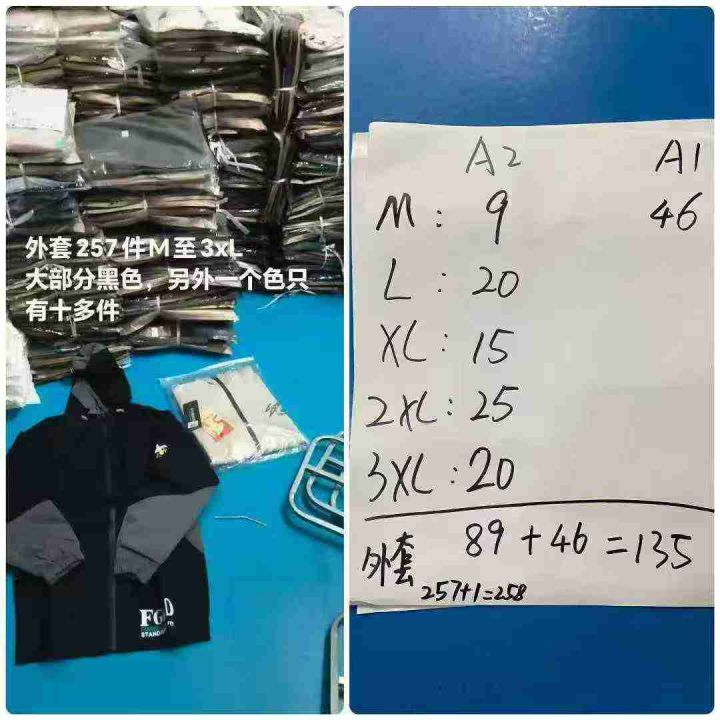 外套257件M至3xL
大部分黑色，另外一个色只
有十多件
A2 A1
M: 9 46
L: 20
XL: 15
2XL: 25
3XL: 20
外套 89+46=135
257+1=258